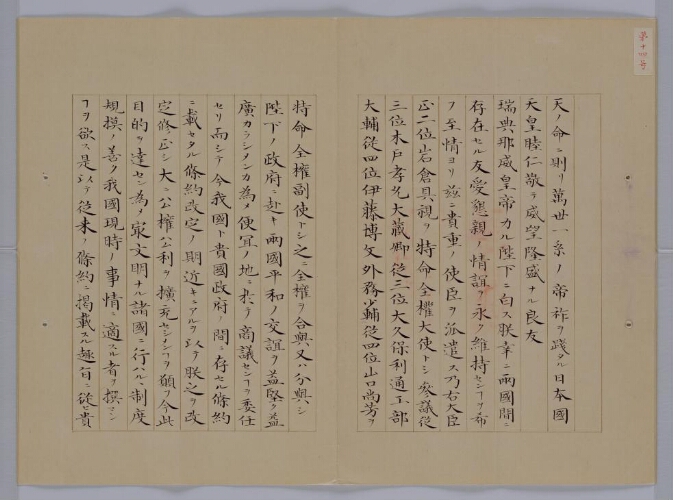 第十四号
天ノ命ニ則リ萬世一系ノ帝祚ヲ踐タル日本國
天皇睦仁敬テ威望隆盛ナル良友
瑞典那威皇帝カル陛下ニ白ス朕幸ニ兩國間ニ
存在セル友愛懇親ノ情誼ヲ永ク維持センヿヲ希
フ至情ヨリ茲ニ貴重ノ使臣ヲ派遣ス乃右大臣
正二位岩倉具視ヲ特命全權大使トシ參議従
三位木戸孝允大藏卿従三位大久保利通工部
大輔従四位伊藤博文外務少輔従四位山口尚芳ヲ
特命全權副使トシ之ニ全權ヲ合與又ハ分與シ
陛下ノ政府ニ赴キ兩國平和ノ交誼ヲ益堅ク益
廣カラシメンカ為メ便冝ノ地ニ於テ商議センヿヲ委任
セリ而シテ今我國ト貴國政府ノ間ニ存セル條約
ニ載セタル條約改定ノ期近キニアルヲ以テ朕之ヲ改
定修正シ大ニ公權公利ヲ擴充センヿヲ願フ今此
目的ヲ達セン為メ最文明ナル諸國ニ行ハルヽ制度
規摸ノ善ク我國現時ノ事情ニ適スル者ヲ撰マン
ヿヲ欲ス是以テ従来ノ條約ニ掲載スル趣旨ニ従ヒ貴